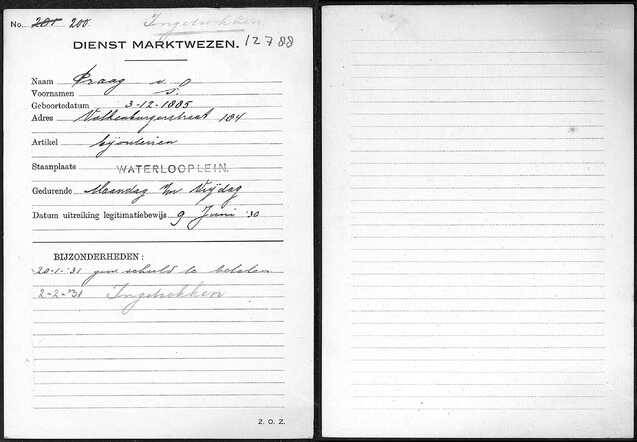 No. 201 200 Ingetrokken
DIENST MARKTWEZEN. 12788
Naam Praag v.
Voornamen S.
Geboortedatum 3-12-1885
Adres Valkenburgerstraat 184
Artikel bijouterieën
Staanplaats WATERLOOPLEIN.
Gedurende Maandag t/m Vrijdag
Datum uitreiking legitimatiebewijs 9 Juni '30
BIJZONDERHEDEN:
20-1-'31 geen schuld te betalen
2-2-'31 Ingetrokken
Z. O. Z.